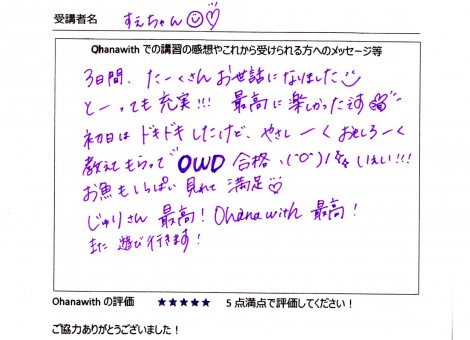 受講者名 すえちゃん
Ohanawith での講習の感想やこれから受けられる方へのメッセージ等
3日間、たーくさんお世話になりました
とーっても充実!!! 最高に楽しかったです
初日はドキドキしたけど、やさしーくおもしろーく
教えてもらって OWD 合格 いえい!!!
お魚もいっぱい見れて満足
じゅりさん 最高! Ohanawith 最高!
また 遊び行きます!
Ohanawith の評価 ★★★★★ 5 点満点で評価してください!
ご協力ありがとうございました!